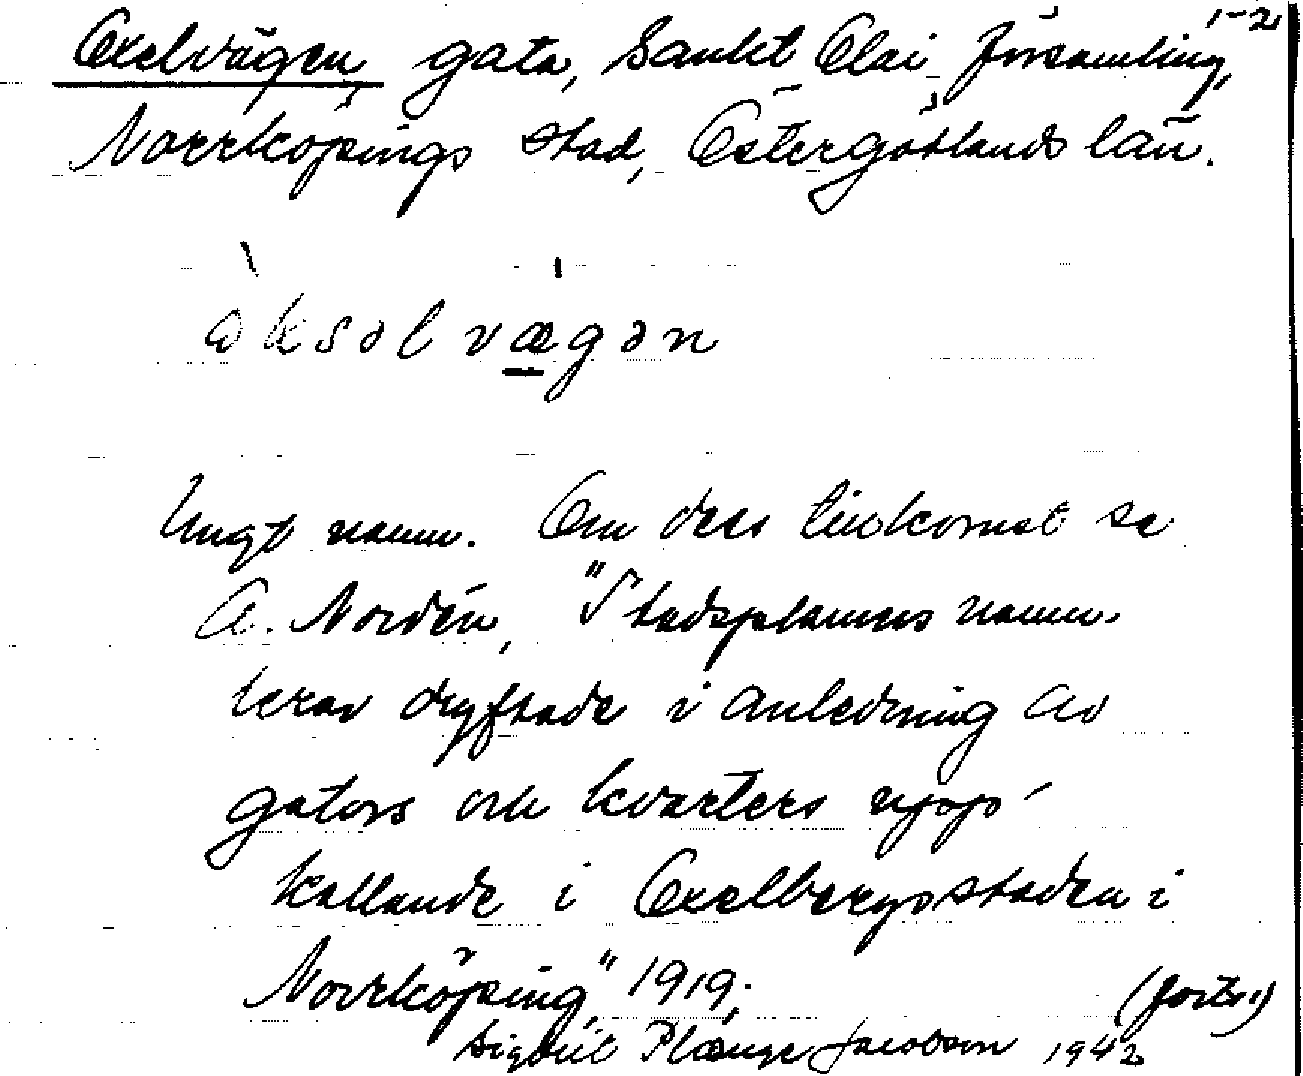 Oxelvägen, gata, Sankt Olai församling, 1-2
Norrköpings stad, Östergötlands län.
ȯksəlvægən
Ungt namn. Om dess tillkomst se
A. Nordén, "Stadsplanens namn-
krav dryftade i anledning av
gators och kvarters upp-
kallande i Oxelbergsstaden i
Norrköping", 1919.
(forts.)
Sigbrit Plænge Jacobson 1942